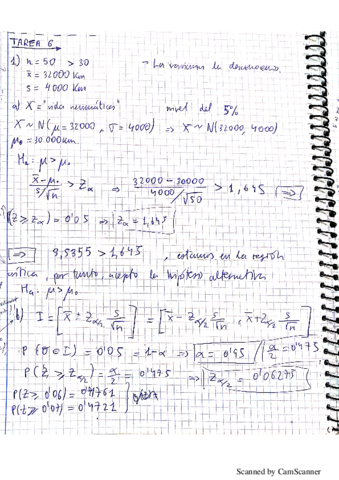 TAREA 6
1) n = 50 > 30 - La varianza la desconozco.
x̄ = 32000 Km
s = 4000 Km
a) X = "vida neumáticos" nivel del 5%
X ~ N(μ = 32000, σ = 4000) ⇒ X ~ N(32000, 4000)
μ₀ = 30.000 km.
Hₐ: μ > μ₀
x̄ - μ₀ / s/√n > Zα ⇒ 32000 - 30000 / 4000/√50 > 1,645 ⇒
P(Z ≥ zα) = 0'05 ⇒ Zα = 1,645
⇒ 3,5355 > 1,645 , estamos en la región
crítica, por tanto, acepto la hipótesis alternativa
Hₐ: μ > μ₀
b) I = [x̄ ± Zα/2 s/√n] = [x̄ - Zα/2 s/√n , x̄ + Zα/2 s/√n]
P(θ ∈ I) = 0'05 = 1 - α ⇒ α = 0'95 / α/2 = 0'475
P(Z ≥ Zα/2) = α/2 = 0'475 ⇒ Zα/2 = 0'06275
P(Z ≥ 0'06) = 0'4761
P(Z ≥ 0'07) = 0'4721
Scanned by CamScanner